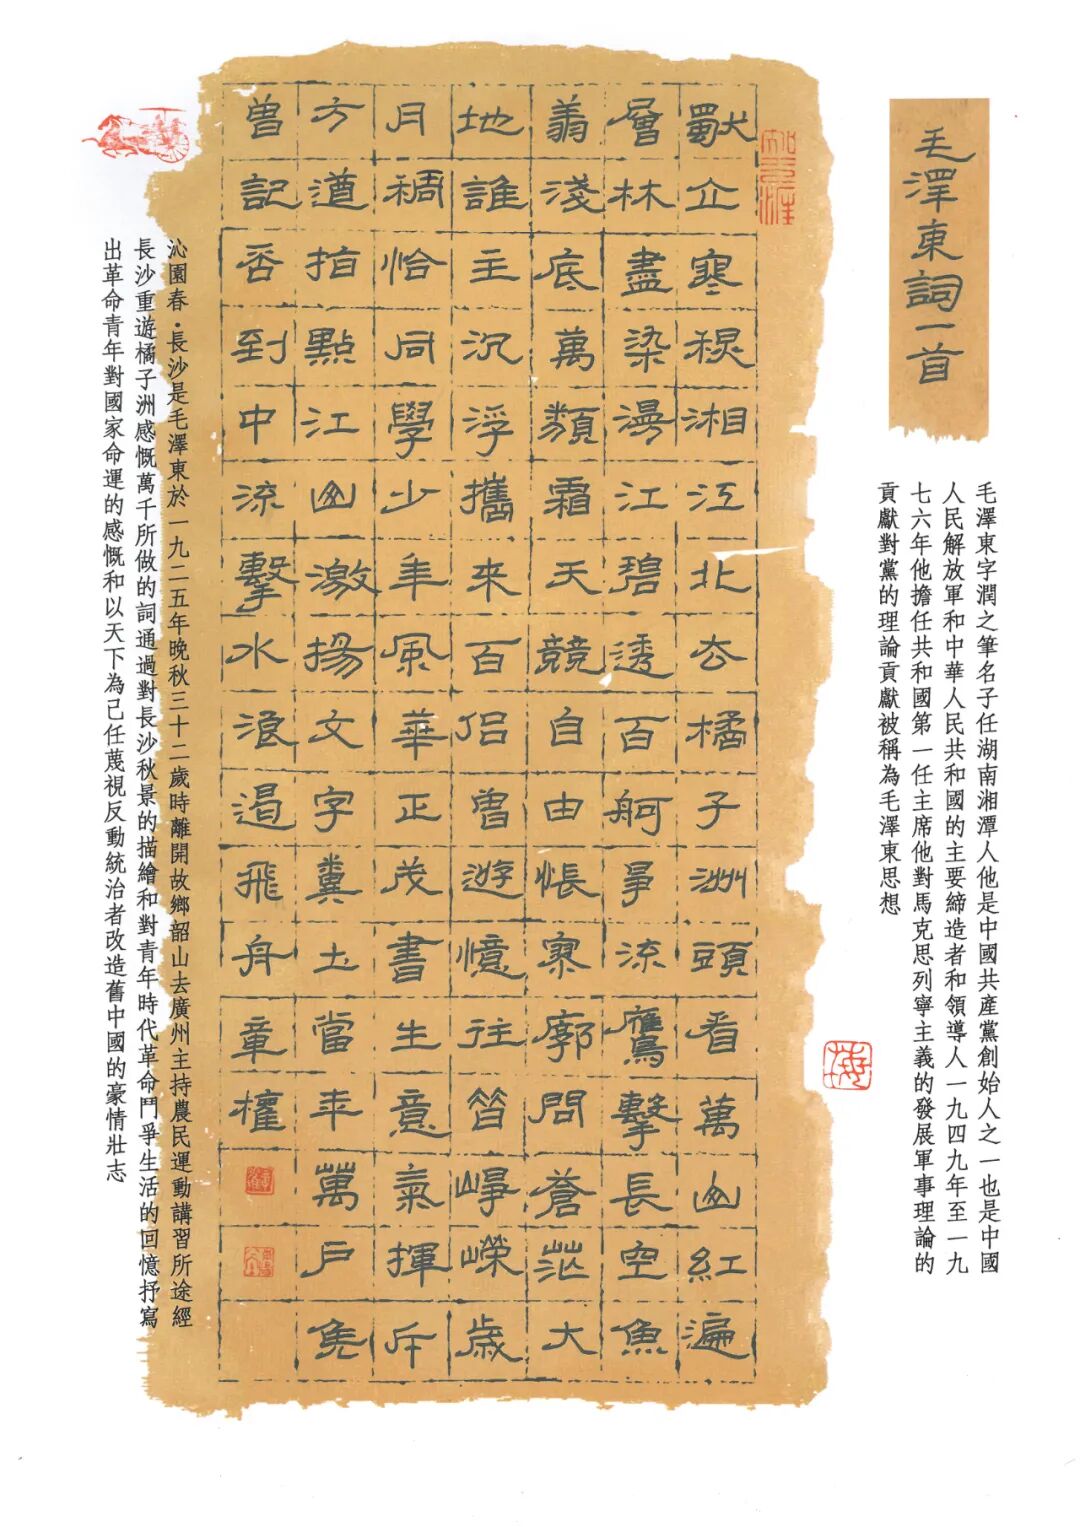 毛澤東詞一首
毛澤東字潤之筆名子任湖南湘潭人他是中國共產黨創始人之一也是中國
人民解放軍和中華人民共和國的主要締造者和領導人一九四九年至一九
七六年他擔任共和國第一任主席他對馬克思列寧主義的發展軍事理論的
貢獻對黨的理論貢獻被稱為毛澤東思想
獨立寒秋湘江北去橘子洲頭看萬山紅遍
層林盡染漫江碧透百舸爭流鷹擊長空魚
翔淺底萬類霜天競自由悵寥廓問蒼茫大
地誰主沉浮攜來百侶曾遊憶往昔崢嶸歲
月稠恰同學少年風華正茂書生意氣揮斥
方遒指點江山激揚文字糞土當年萬戶侯
曾記否到中流擊水浪遏飛舟章權
沁園春·長沙是毛澤東於一九二五年晚秋三十二歲時離開故鄉韶山去廣州主持農民運動講習所途經
長沙重遊橘子洲感慨萬千所做的詞通過對長沙秋景的描繪和對青年時代革命鬥爭生活的回憶抒寫
出革命青年對國家命運的感慨和以天下為己任蔑視反動統治者改造舊中國的豪情壯志